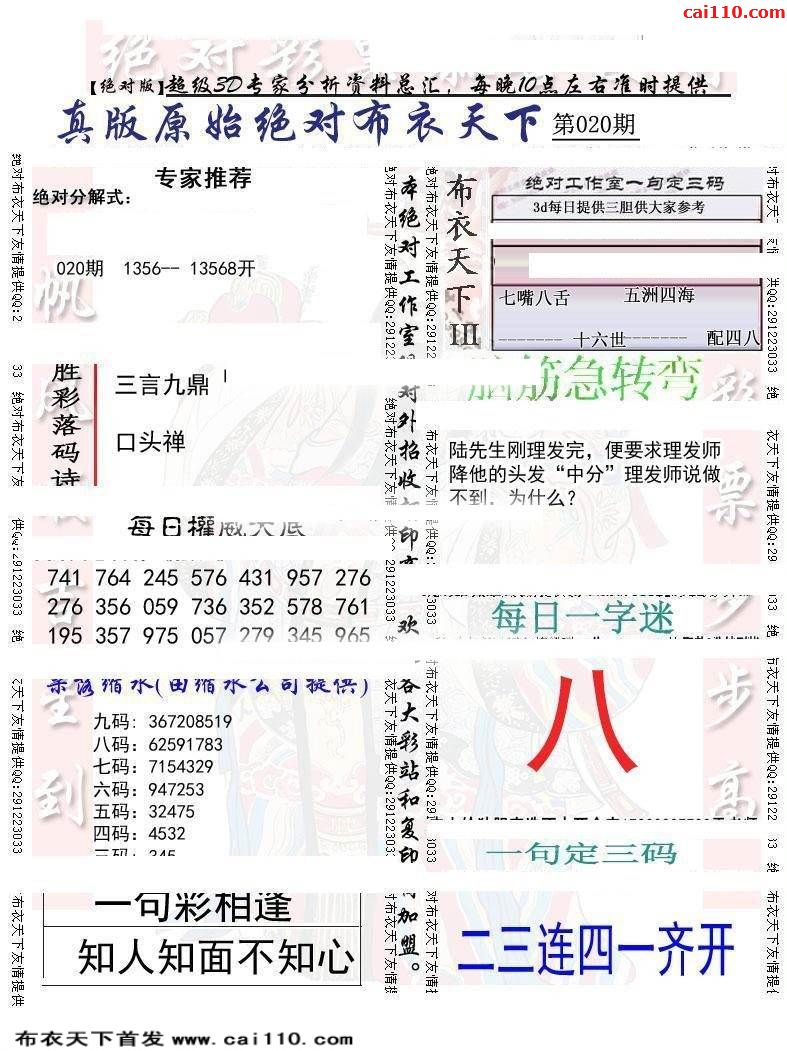 cai110.com
【绝对版】超级3D专家分析资料总汇，每晚10点左右准时提供
真版原始绝对布衣天下 第020期
专家推荐
绝对分解式：
020期 1356-- 13568开
胜彩落码诗
三言九鼎
口头禅
每日
741 764 245 576 431 957 276
276 356 059 736 352 578 761
195 357 975 057 279 345 965
缩水(由缩水公司提供)
九码: 367208519
八码: 62591783
七码: 7154329
六码: 947253
五码: 32475
四码: 4532
三码: 345
一句彩相逢
知人知面不知心
本绝对工作室
对外招收
印
欢
各大彩站和复印
加盟。
布衣天下III
绝对工作室一句定三码
3d每日提供三胆供大家参考
七嘴八舌 五洲四海
-------- 十六世-------- 配四八
脑筋急转弯
陆先生刚理发完，便要求理发师
降他的头发“中分”理发师说做
不到，为什么?
每日一字迷
八
一句定三码
二三连四一齐开
一帆风顺
吉星
到
彩票
步步高
绝对布衣天下友情提供QQ:291223033
布衣天下首发 www.cai110.com